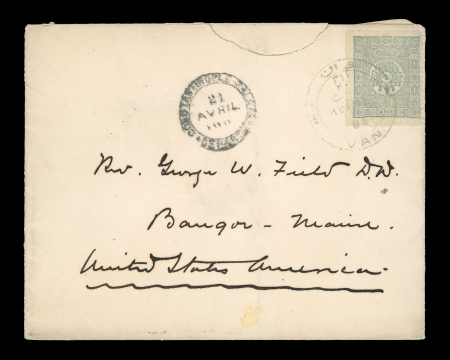 CONSTANTINOPLE-GALATA
21
AVRIL
VAN
Rev. George W. Field D.D.
Bangor – Maine.
United States America.